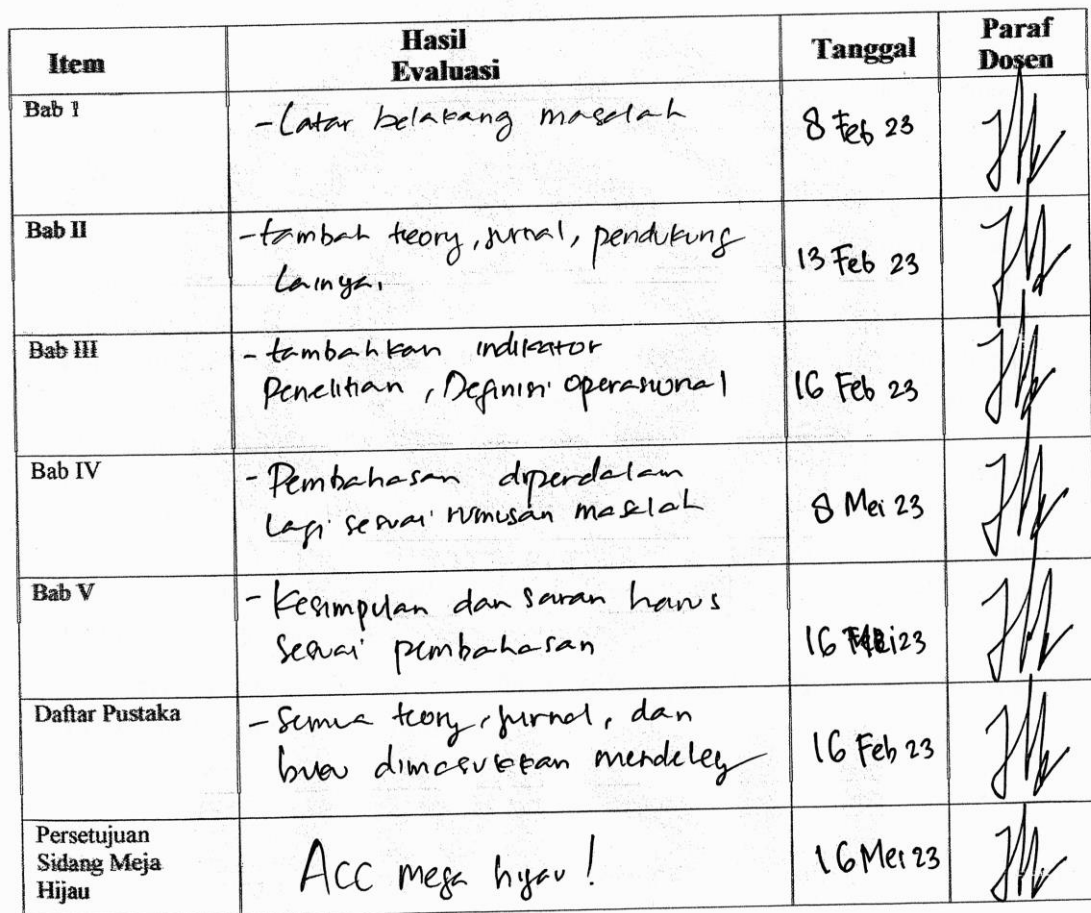 Item Hasil Evaluasi Tanggal Paraf Dosen
Bab I
- Latar belakang masalah
8 Feb 23
Bab II
- tambah teory, jurnal, pendukung
lainya.
13 Feb 23
Bab III
- tambahkan indikator
Penelitian, Definisi operasional
16 Feb 23
Bab IV
- Pembahasan diperdalam
lagi sesuai rumusan masalah
8 Mei 23
Bab V
- Kesimpulan dan saran harus
sesuai pembahasan
16 Mei 23
Daftar Pustaka
- Semua teory, jurnal, dan
buku dimasukkan mendeley
16 Feb 23
Persetujuan
Sidang Meja
Hijau
Acc meja hijau!
16 Mei 23